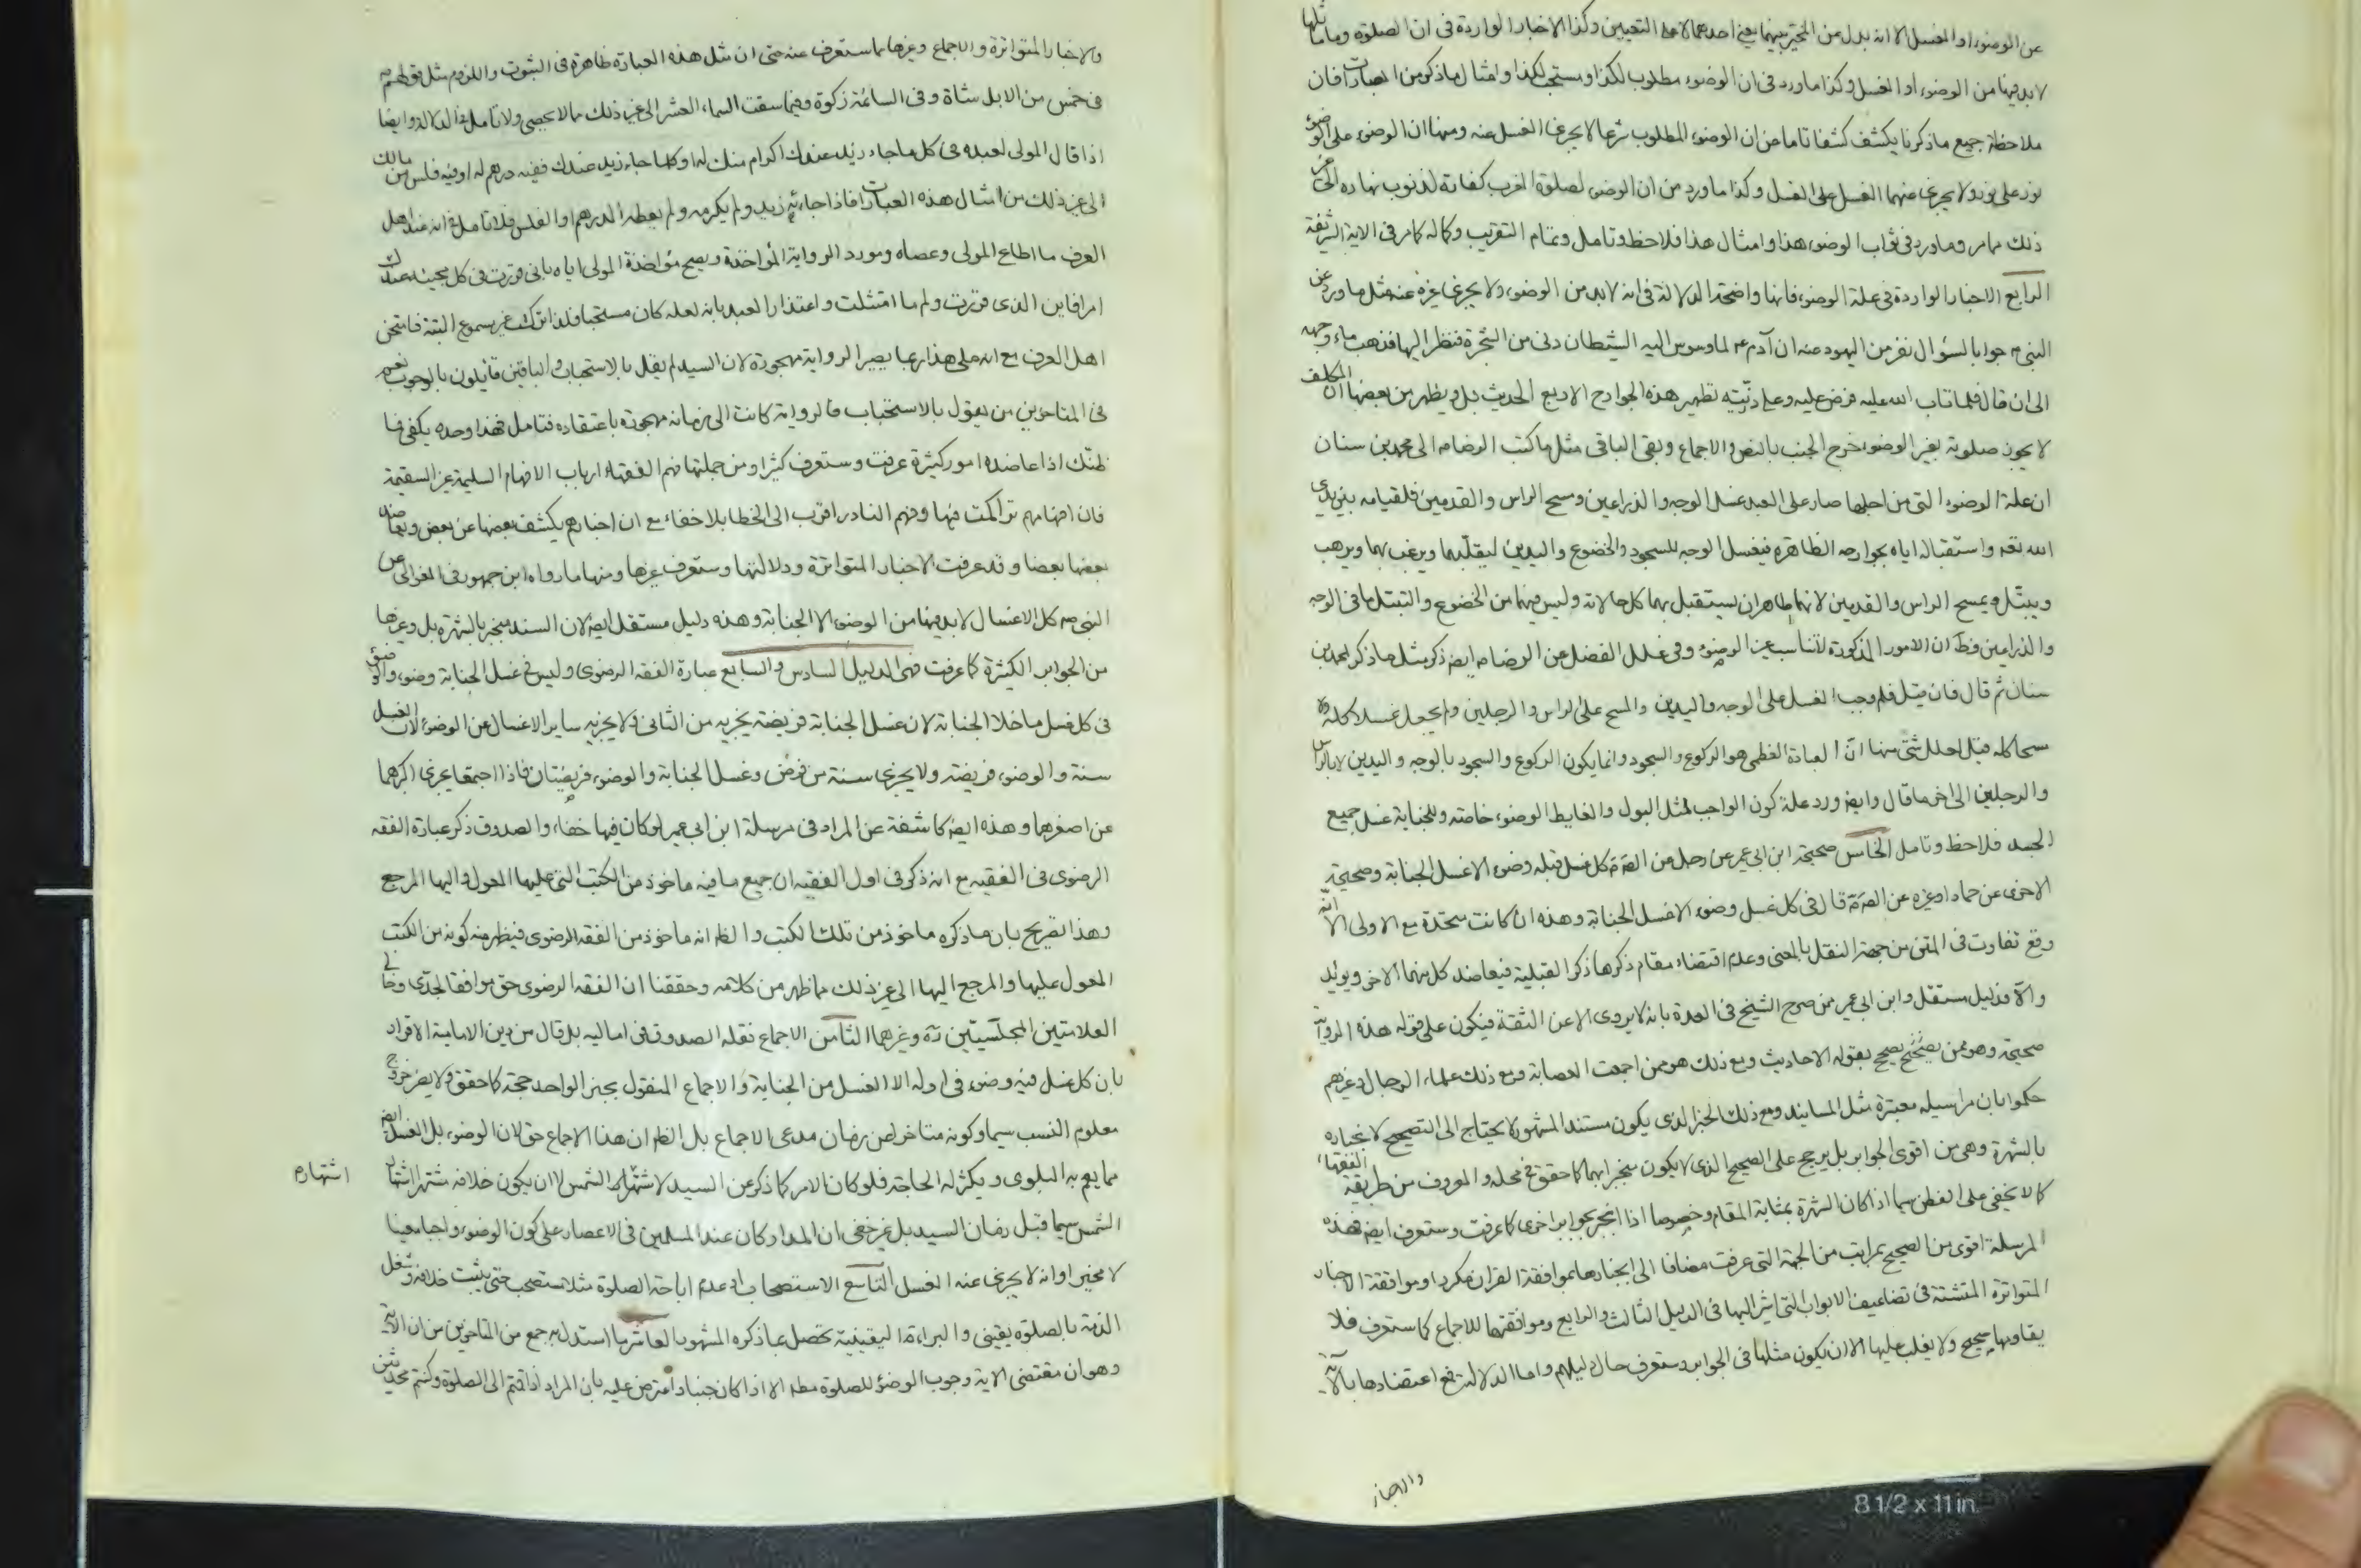 عن الوضوء او الغسل الا انه بدل من التخيير بينهما يعني احدهما لا على التعيين وكذا الاخبار الواردة في ان الصلوة وماماثلها
لابد فيها من الوضوء او الغسل وكذا ما ورد في ان الوضوء مطلوب لكذا ومستحب لكذا وامثال ما ذكر من العبارات فان
ملاحظة جميع ما ذكرنا يكشف كشفا تاما عن ان الوضوء المطلوب شرعا لا يجزي الغسل عنه ومنها ان الوضوء على الوضوء
نور على نور ولا يجزي عنهما الغسل على الغسل وكذا ما ورد من ان الوضوء لصلوة المغرب كفارة لذنوب نهاره الى غير
ذلك مما مر وما ورد في ثواب الوضوء هذا وامثال هذا فلاحظ وتامل وتمام التقريب وكماله كما مر في الاية الشريفة
الرابع الاخبار الواردة في علة الوضوء فانها واضحة الدلالة في انه لابد من الوضوء ولا يجزي غيره عنه مثل ما ورد عن
النبي ص جوابا لسؤال نفر من اليهود عنه ان آدم ع لما وسوس اليه الشيطان دنى من الشجرة فنظر اليها فذهب ماء وجهه
الى ان قال فلما تاب الله عليه فرض عليه وعلى ذريته تطهير هذه الجوارح الاربع الحديث بل ويظهر من بعضها ان المكلف
لا يجوز صلوته بغير الوضوء خرج الجنب بالنص والاجماع وبقى الباقي مثل ما كتب الرضا ع الى محمد بن سنان
ان علة الوضوء التي من اجلها صار على العبد غسل الوجه والذراعين ومسح الراس والقدمين فلقيامه بين يدي
الله تعه واستقباله اياه بجوارحه الظاهرة فيغسل الوجه للسجود والخضوع واليدين ليقلبهما ويرغب بهما ويرهب
ويبتل ويمسح الراس والقدمين لانهما ظاهران يستقبل بهما كل حالاته وليس فيهما من الخضوع والتبتل ما في الوجه
والذراعين وظ ان الامور المذكورة لا تناسب غير الوضوء وفي علل الفضل عن الرضا ع ايض ذكر مثل ما ذكر لمحمد بن
سنان ثم قال فان قيل فلم وجب الغسل على الوجه واليدين والمسح على الراس والرجلين ولم يجعل غسلا كله ولا
مسحا كله قيل لعلل شتى منها ان العبادة العظمى هو الركوع والسجود وانما يكون الركوع والسجود بالوجه واليدين لا بالراس
والرجلين الى اخر ما قال وايض ورد علة كون الواجب لمثل البول والغايط الوضوء خاصة وللجنابة غسل جميع
الجسد فلاحظ وتامل الخامس صحيحة ابن ابي عمير عن رجل عن الص ع كل غسل قبله وضوء الا غسل الجنابة وصحيحته
الاخرى عن حماد او غيره عن الص ع قال في كل غسل وضوء الا غسل الجنابة وهذه ان كانت متحدة مع الاولى الا انه
وقع تفاوت في المتن من جهة النقل بالمعنى وعدم اقتضاء مقام ذكرها ذكر القبلية فيعاضد كل منهما الاخر ويويد
والا فدليل مستقل وابن ابي عمير ممن صرح الشيخ في العدة بانه لا يروى الا عن الثقة فيكون على قوله هذه الرواية
صحيحة وهو ممن يصحح بقوله الاحاديث ومع ذلك هو ممن اجمعت العصابة ومع ذلك علماء الرجال وغيرهم
حكموا بان مراسيله معتبرة مثل المسانيد ومع ذلك الخبر الذي يكون مستند المشهور لا يحتاج الى التصحيح لانجباره
بالشهرة وهي من اقوى الجوابر بل يرجح على الصحيح الذي لا يكون منجبرا بها كما حقق في محله والمعروف من طريقة الفقهاء
كما لا يخفى على الفطن سيما اذا كان الشهرة بمثابة المقام وخصوصا اذا انجبر بجوابر اخرى كما عرفت وستعرف ايض فهذه
المرسلة اقوى من الصحيح بمراتب من الجهة التي عرفت مضافا الى انجبارها بموافقة القران مكررا وموافقة الاخبار
المتواترة المتشتتة في تضاعيف الابواب التي اشير اليها في الدليل الثالث والرابع وموافقتها للاجماع كما ستعرف فلا
يقاومها صحيح ولا يغلب عليها الا ان يكون مثلها في الجوابر وستعرف حال دليلهم واما الدلالة فمع اعتضادها بالآية
والاخبار
والاخبار المتواترة والاجماع وغيرها مما ستعرف عنه حتى ان مثل هذه العبارة ظاهرة في الثبوت واللزوم مثل قولهم ع
في خمس من الابل شاة وفي السائمة زكوة وفيما سقت السماء العشر الى غير ذلك مما لا يحصى ولا تامل في الدلالة وايضا
اذا قال المولى لعبده في كل ما جاء زيد عندك اكرام منك له او كلما جاء زيد عندك ففيه درهم له او فيه فلس من مالك
الى غير ذلك من امثال هذه العبارات فاذا جاءه زيد ولم يكرمه ولم يعطه الدرهم او الفلس فلا تامل في انه عند اهل
العرف ما اطاع المولى وعصاه ومورد الرواية المؤاخذة ويصح مؤاخذة المولى اياه باني قررت في كل مجيئه عندك
امرا فاين الذي قررت ولم ما امتثلت واعتذار العبد بانه لعله كان مستحبا فلذا تركت غير مسموع البتة فامتحن
اهل العرف مع انه على هذا ربما يصير الرواية مهجورة لان السيد لم يقل بالاستحباب والباقين قايلون بالوجوب نعم
في المتاخرين من يقول بالاستحباب فالرواية كانت الى زمانه مهجورة باعتقاده فتامل فهذا وحده يكفي فما
ظنك اذا عاضده امور كثيرة عرفت وستعرف كثيرا ومن جملتها فهم الفقهاء ارباب الافهام السليمة غير السقيمة
فان افهامهم تراكمت فيها وفهم النادر اقرب الى الخطا بلا خفاء مع ان اخبارهم يكشف بعضها عن بعض ويعاضد
بعضها بعضا وقد عرفت الاخبار المتواترة ودلالتها وستعرف غيرها ومنها ما رواه ابن جمهور في الغوالي عن
النبي ص كل الاغسال لابد فيها من الوضوء الا الجنابة وهذه دليل مستقل ايض لان السند منجبر بالشهرة بل وغيرها
من الجوابر الكثيرة كما عرفت فهي الدليل السادس والسابع عبارة الفقه الرضوي وليس في غسل الجنابة وضوء والوضوء
في كل غسل ما خلا الجنابة لان غسل الجنابة فريضة يجزيه من الثاني ولا يجزيه ساير الاغسال عن الوضوء لان الغسل
سنة والوضوء فريضة ولا يجزي سنة من فرض وغسل الجنابة والوضوء فريضتان فاذا اجتمعا يجزي اكبرهما
عن اصغرهما وهذه ايض كاشفة عن المراد في مرسلة ابن ابي عمير لو كان فيها خفاء والصدوق ذكر عبارة الفقه
الرضوي في الفقيه مع انه ذكر في اول الفقيه ان جميع ما فيه ماخوذ من الكتب التي عليها المعول واليها المرجع
وهذا تصريح بان ما ذكره ماخوذ من تلك الكتب والظ انه ماخوذ من الفقه الرضوي فيظهر منه كونه من الكتب
المعول عليها والمرجع اليها الى غير ذلك مما ظهر من كلامه وحققنا ان الفقه الرضوي حق موافقا لجدي وخالي
العلامتين المجلسيين ره وغيرهما الثامن الاجماع نقله الصدوق في اماليه بل قال من دين الامامية الاقرار
بان كل غسل فيه وضوء في اوله الا الغسل من الجنابة والاجماع المنقول بخبر الواحد حجة كما حقق ولا يضر خروج
معلوم النسب سيما وكونه متاخرا عن زمان مدعى الاجماع بل الظ ان هذا الاجماع حق لان الوضوء بل الغسل ايض
مما يعم به البلوى ويكثر له الحاجة فلو كان الامر كما ذكر عن السيد لاشتهر اشتهار الشمس لا ان يكون خلافه مشتهرا اشتهار
اشتهار
الشمس سيما قبل زمان السيد بل غير خفي ان المدار كان عند المسلمين في الاعصار على كون الوضوء واجبا معينا
لا مخيرا وانه لا يجزي عنه الغسل التاسع الاستصحاب اي عدم اباحة الصلوة مثلا مستصحب حتى يثبت خلافه وشغل
الذمة بالصلوة يقيني والبراءة اليقينية تحصل بما ذكره المشهور العاشر ما استدل به جمع من المتاخرين من ان الاية
وهو ان مقتضى الاية وجوب الوضوء للصلوة مطلقا الا اذا كان جنبا واعترض عليه بان المراد اذا قمتم الى الصلوة وكنتم محدثين
8 1/2 x 11 in.